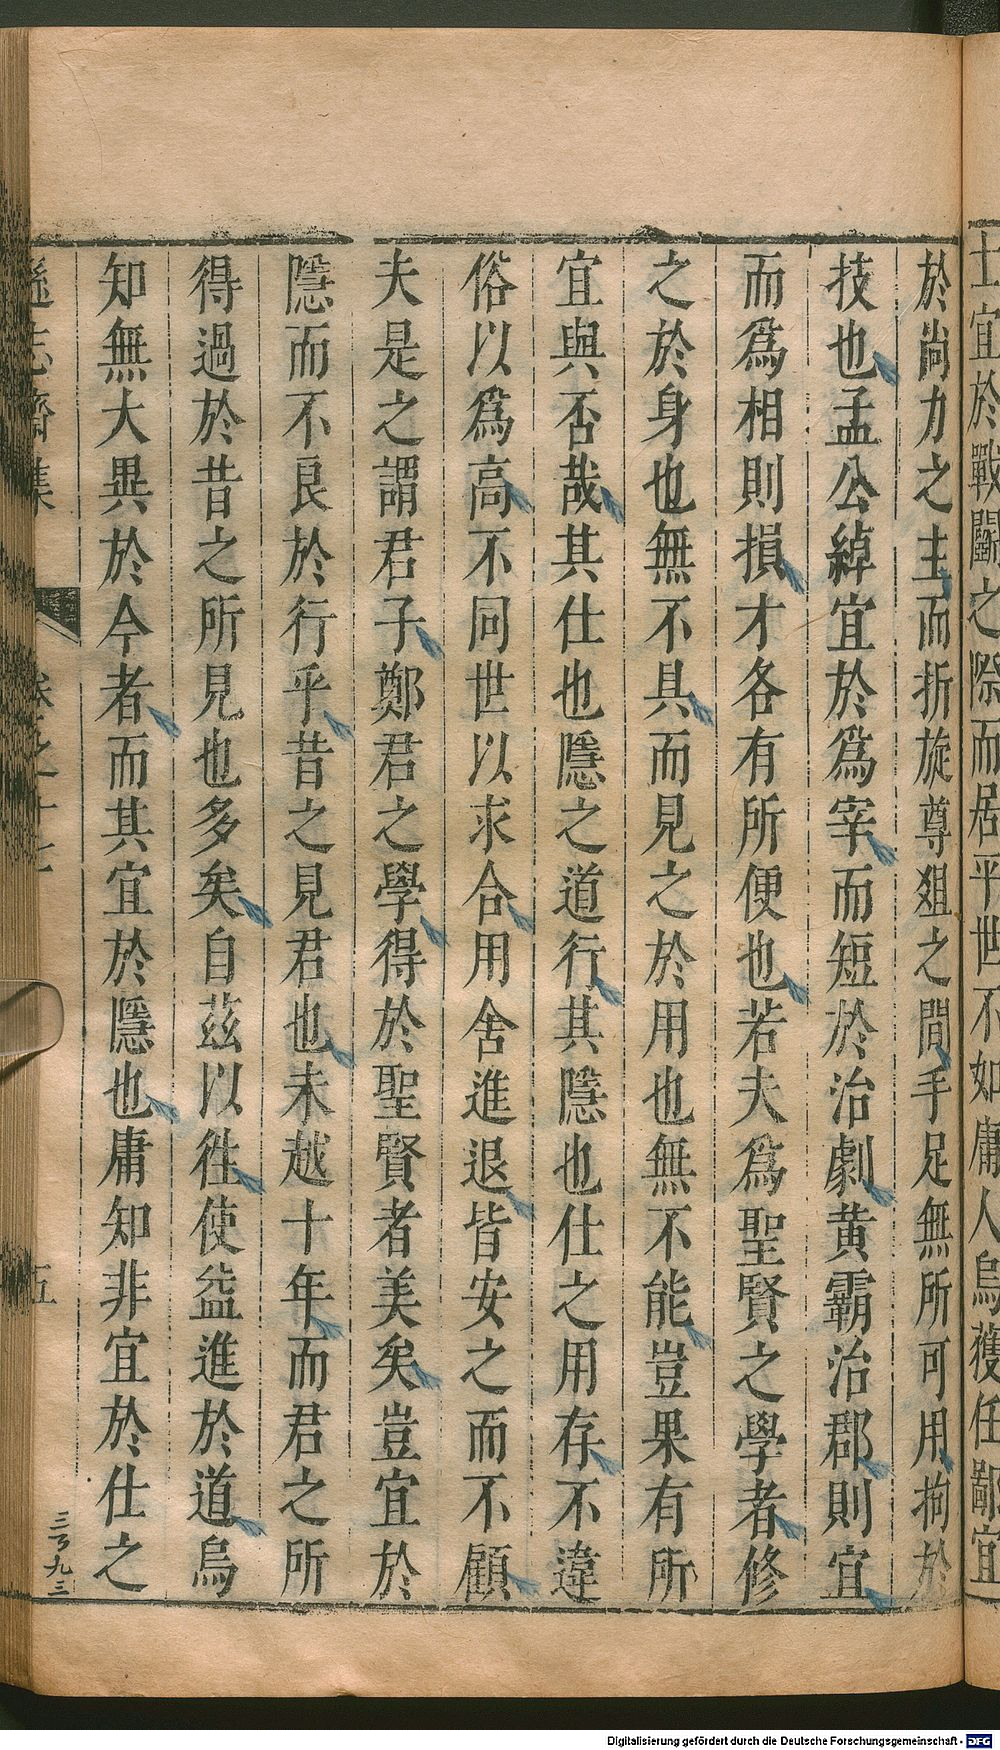 士宜於戰鬬之際而居平世不如庸人烏獲任鄙宜
於尚力之主而折旋尊爼之間手足無所可用拘於
技也孟公綽宜於爲宰而短於治劇黄霸治郡則宜
而爲相則損才各有所便也若夫爲聖賢之學者修
之於身也無不具而見之於用也無不能豈果有所
宜與否哉其仕也隱之道行其隱也仕之用存不違
俗以爲高不同世以求合用舍進退皆安之而不顧
夫是之謂君子鄭君之學得於聖賢者美矣豈宜於
隱而不良於行乎昔之見君也未越十年而君之所
得過於昔之所見也多矣自茲以徃使益進於道烏
知無大異於今者而其宜於隱也庸知非宜於仕之
遜志齋集
卷之十七
五
Digitalisierung gefördert durch die Deutsche Forschungsgemeinschaft - DFG